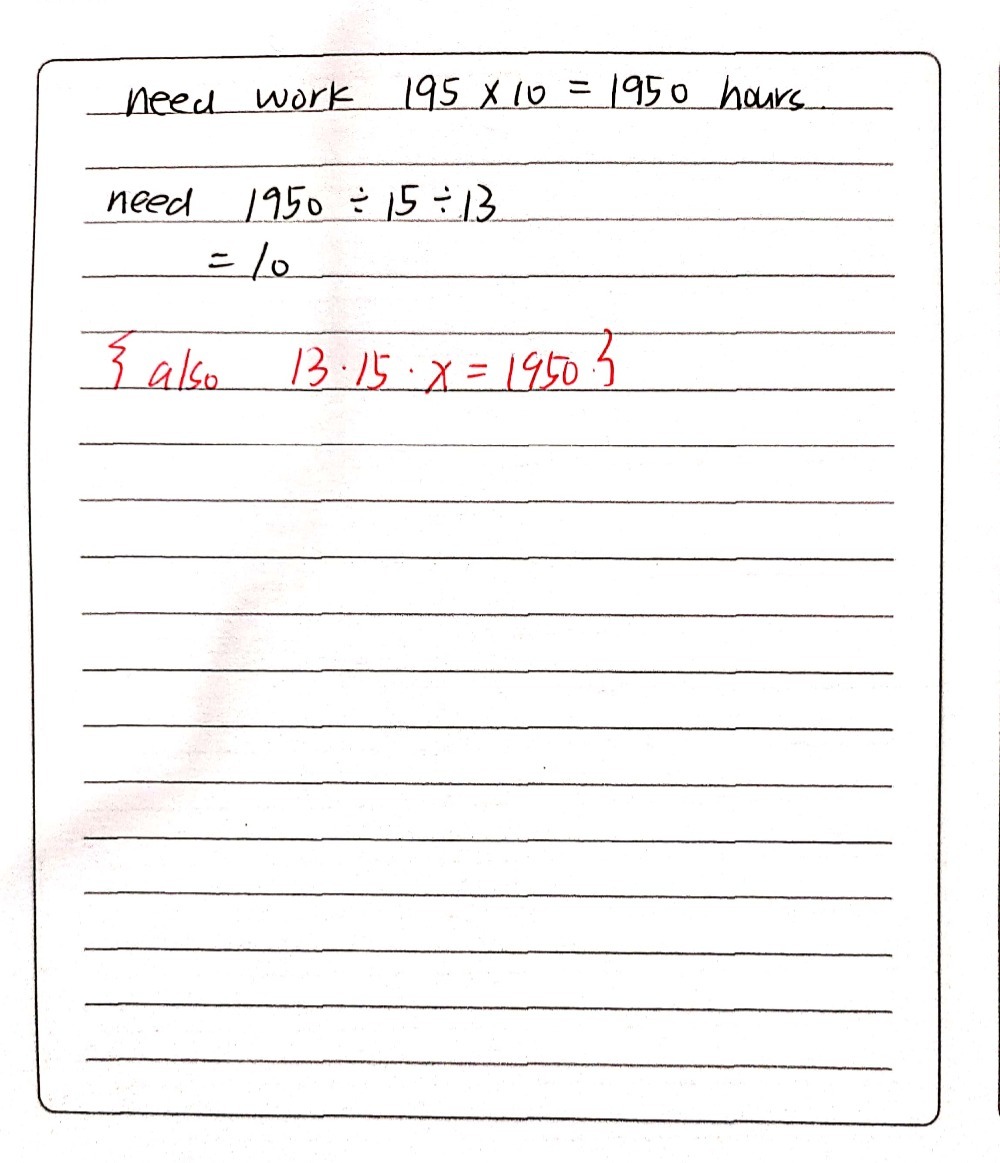 need work 195 × 10 = 1950 hours.
need 1950 ÷ 15 ÷ 13
= 10
{ also 13 · 15 · x = 1950 . }